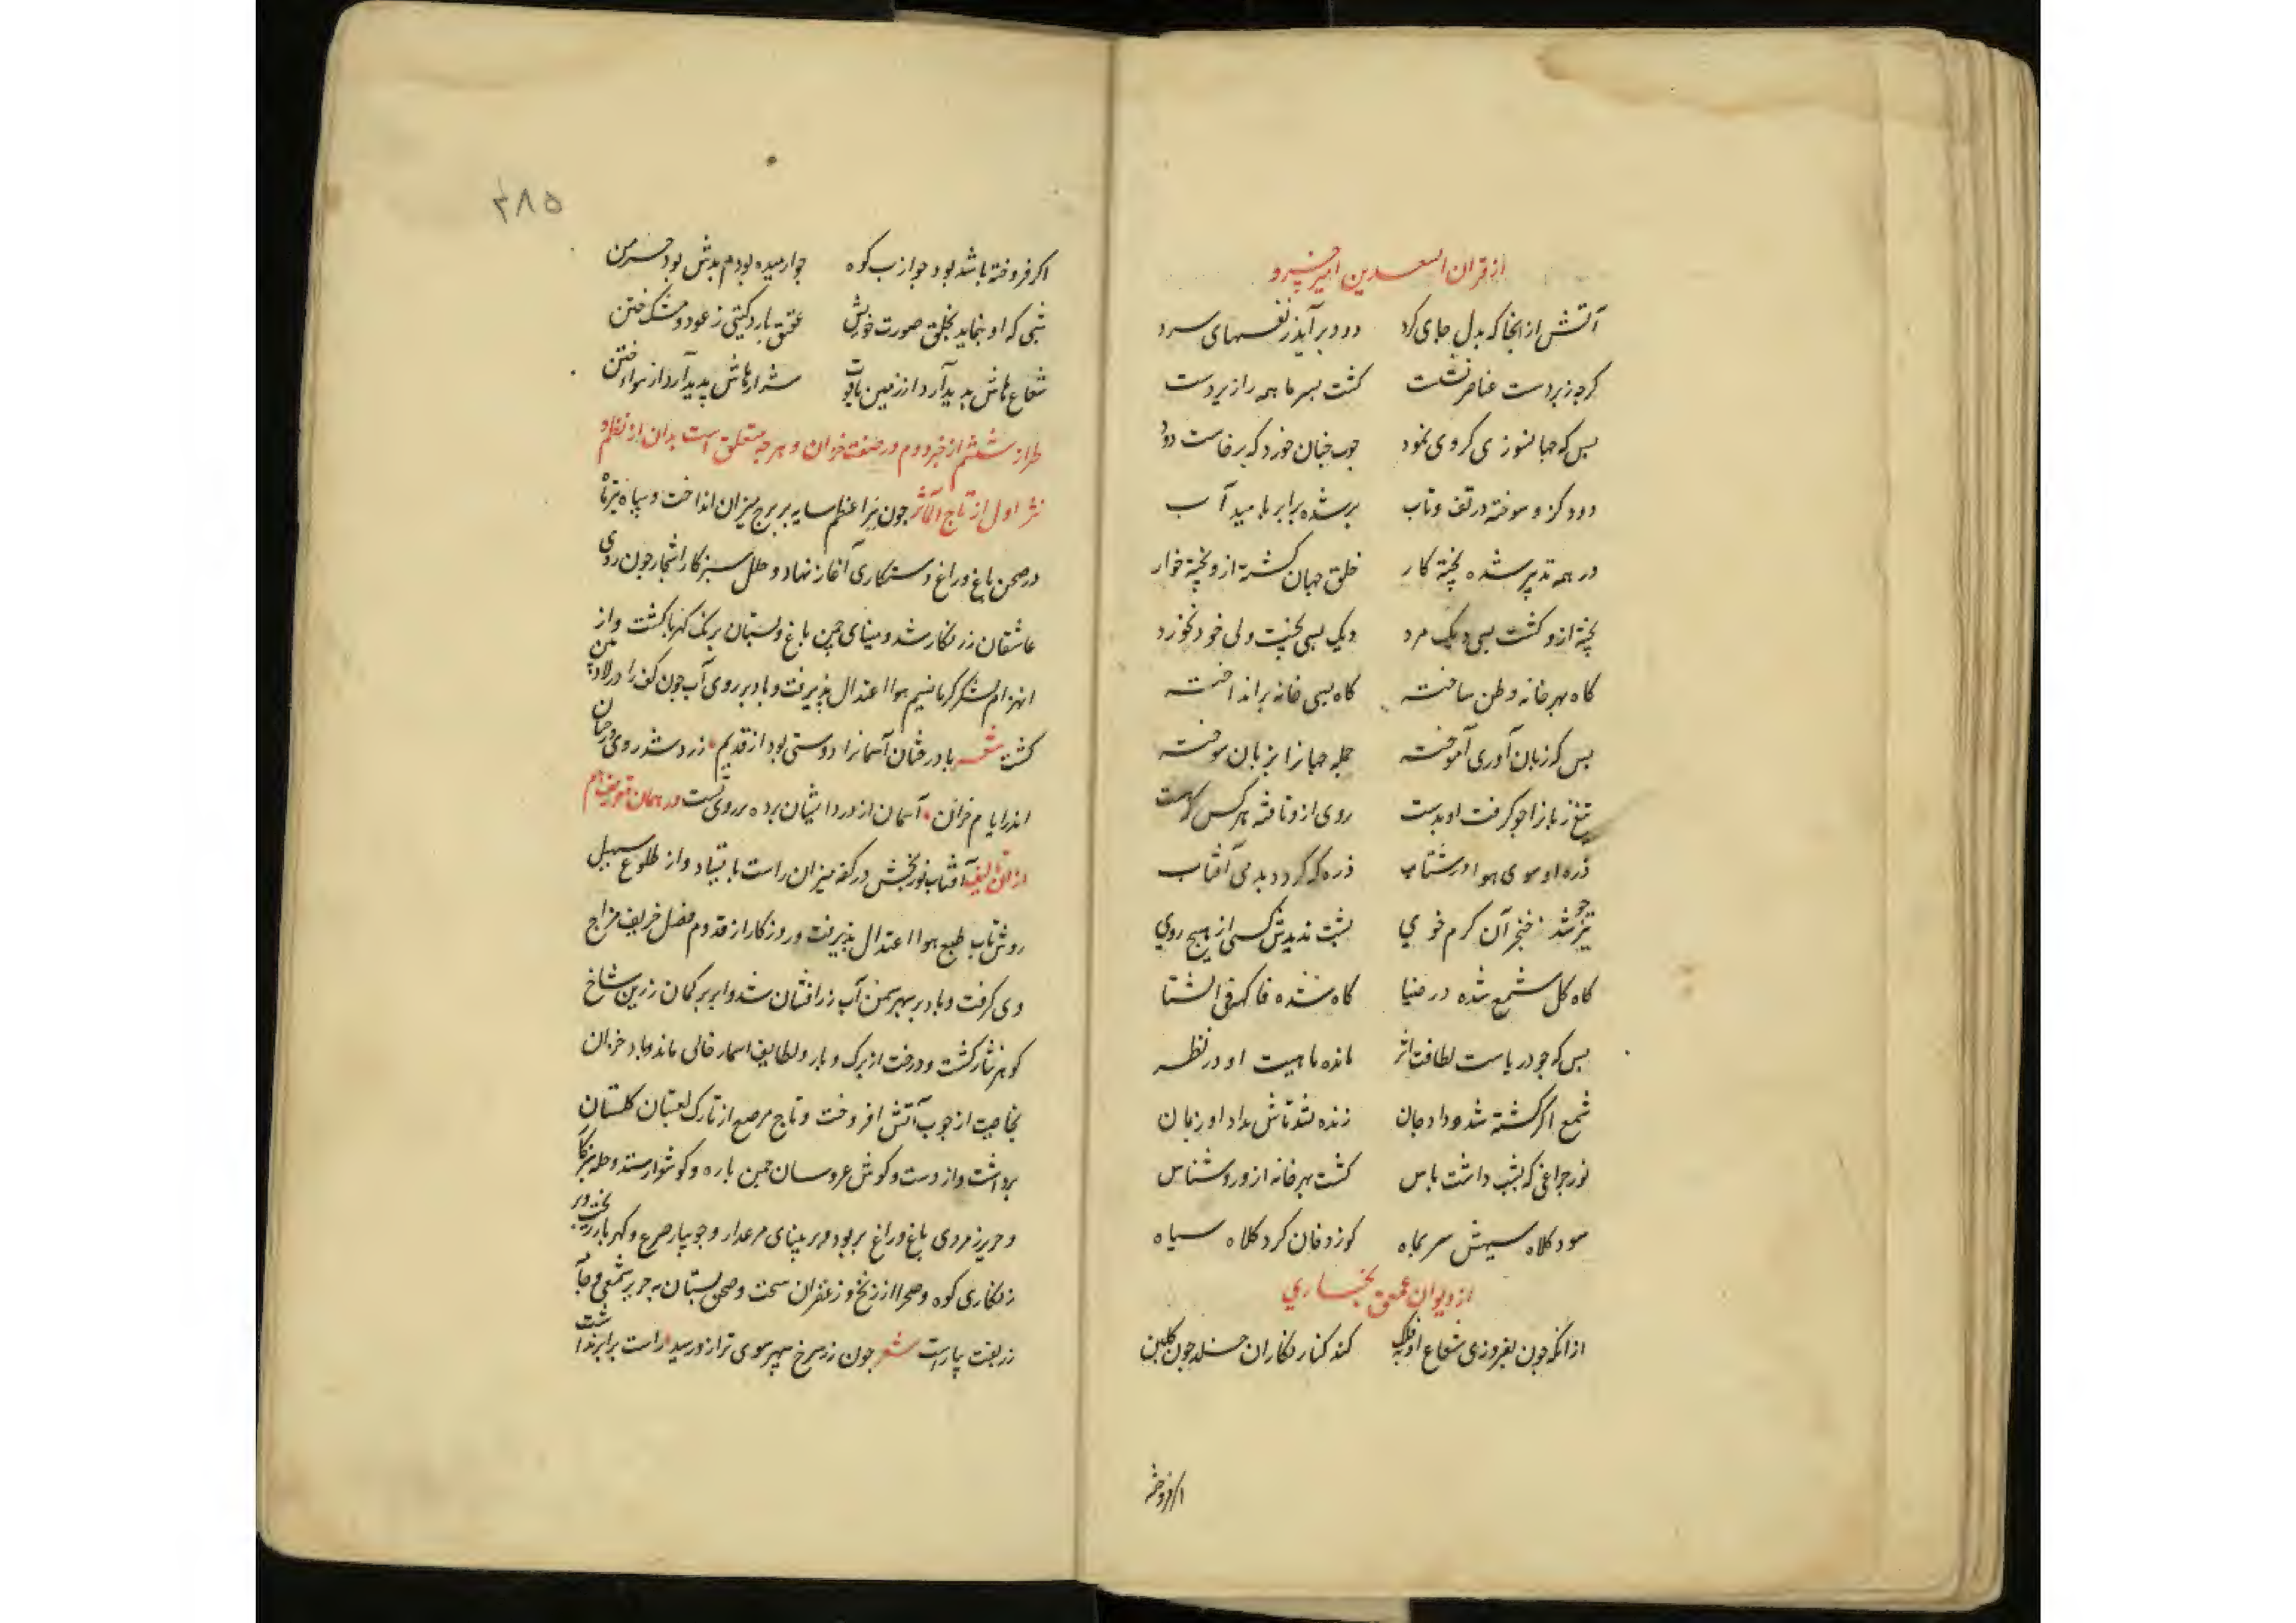 از قران السعدین امیر خسرو
آتش از انجا که بدل جای کرد دود بر آید ز نفسهای سرد
کرچه زبردست عناصر نشست کشت بسرما همه را زیردست
بس که جهانسوزی کروی نمود چوب چنان خورد که برخاست دود
دود کزو سوخته در تف و تاب بر شده برابر بامید آب
در همه تدبیر شده پخته کار خلق جهان کشته ازو پخته خوار
پخته ازو کشت بسی دیک مرد دیک بسی پخت ولی خود نخورد
کاه بهر خانه وطن ساخته کاه بسی خانه برانداخته
بس که زبان آوری آموخته جمله جهانرا بزبان سوخته
تیغ زبانرا چو کرفت او بدست روی ازو تافته هر کس که هست
ذره او سوی هوا در شتاب ذره که کردد بدمی آفتاب
تیز چو شد خنجر آن کرم خوی پشت ندیدش کسی از هیچ روی
کاه کل شمع شده در ضیا کاه شده فاکهة فی الشتا
بس که چو دریاست لطافت اثر مانده ماهیت او در نظر
شمع اکر کشته شد و داد جان زنده شد تاش بداد او زبان
نور چراغی که بشب داشت پاس کشت بهر خانه ازو روشناس
سود کلاه سیهش سر بماه کوزه فان کرد کلاه سیاه
از دیوان عمعق بخاری
ازانکه چون بفروزی شعاع او بفلک کند کنار نکاران خلد چون کلبن
اکر فروخته
۲۸۵
اکر فروخته باشد بود چو از بر کوه چو ارمیده بود م بدش بود خرمن
شبی که او بنماید بخلق صورت خویش عقیق بارد کیتی ز عود و مشک ختن
شعاع هاش پدید آرد از زمین یاقوت شرارهاش پدید آرد از هوا
طراز ششم از خبر دوم در صفت خزان و هر چه متعلق است بدان از نظم و
نثر اول از تاج المآثر چون نیر اعظم سایه بر برج میزان انداخت و سپاه تیرماه
در صحن باغ و راغ دستکاری آغاز نهاد و حلل سبزکار اشجار چون روی
عاشقان زر نکار شد و مینای چمن باغ و بستان برنک کهربا کشت و از
انهزام لشکر کرما نسیم هوا اعتدال پذیرفت و باد بر روی آب چون کف را
کشت شعر با درختان آسمانرا دوستی بود از قدیم زرد شد روی درختان
اندر ایام خزان آسمان از درد ایشان پرده بر روی بست در همان تعریف هم
از آن تالیف آفتاب نوربخش در کفه میزان راست باستاد و از طلوع سهیل
روشن تاب طبع هوا اعتدال پذیرفت و روزکار از قدوم فصل خریف مزاج
دی کرفت و باد بر سپهر سیمین آب زرافشان شد و ابر بر کمان زرین شاخ
کوهر نثار کشت و درخت از برک و بار و لطایف اسمار خالی ماند و باد خزان
بخاصیت از چوب آتش افروخت و تاج مرصع از تارک لعبتان کلستان
برداشت و از دست و کوش عروسان چمن یاره و کوشوار ستد و حله سبزکار
و حریر زمردی باغ و راغ بربود و بر مینای مرغزار و جویبار جزع و کهربا
زنکاری کوه و صحرا زرنیخ و زعفران سخت و صحن بستان به حریر شمعی و جامه
زربفت بیاراست شعر چون زر سرخ سپهر سوی ترازو رسید راست برابر بداشت